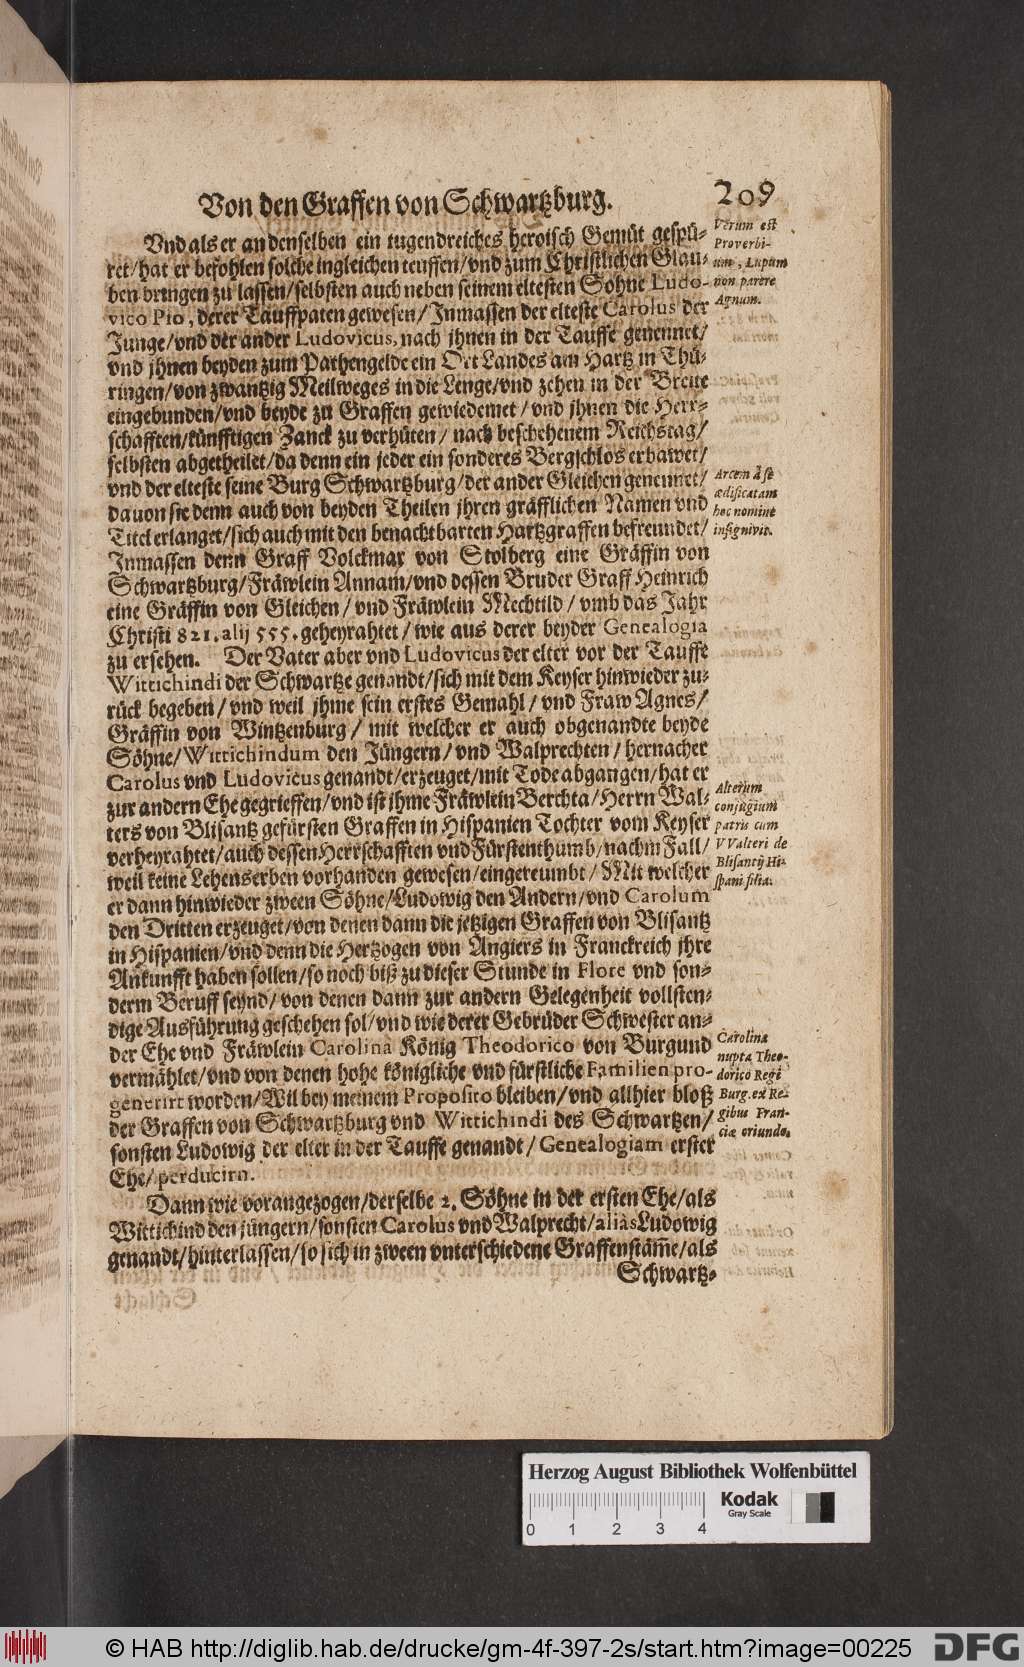 Von den Graffen von Schwartzburg. 209
Vnd als er an denselben ein tugendreiches heroisch Gemüt gespü-
ret/hat er befohlen solche ingleichen teuffen/vnd zum Christlichen Glau-
ben bringen zu lassen/selbsten auch neben seinem eltesten Sohne Ludo-
vico Pio, derer Tauffpaten gewesen/Inmassen der elteste Carolus der
Junge/vnd der ander Ludovicus, nach jhnen in der Tauffe genennet/
vnd jhnen beyden zum Pathengelde ein Ort Landes am Hartz in Thü-
ringen/von zwantzig Meilweges in die Lenge/vnd zehen in der Breite
eingebunden/vnd beyde zu Graffen gewiedemet/vnd jhnen die Herr-
schafften/künfftigen Zanck zu verhüten/nach beschehenem Reichstag/
selbsten abgetheilet/da denn ein jeder ein sonderes Bergschlos erbawet/
vnd der elteste seine Burg Schwartzburg/der ander Gleichen genennet/
dauon sie denn auch von beyden Theilen jhren gräfflichen Namen vnd
Titel erlanget/sich auch mit den benachtbarten Hartzgraffen befreundet/
Inmassen denn Graff Volckmar von Stolberg eine Gräffin von
Schwartzburg/Fräwlein Annam/vnd dessen Bruder Graff Heinrich
eine Gräffin von Gleichen/vnd Fräwlein Mechtild/vmb das Jahr
Christi 821. alij 555. geheyrahtet/wie aus derer beyder Genealogia
zu ersehen. Der Vater aber vnd Ludovicus der elter vor der Tauffe
Wittichindi der Schwartze genandt/sich mit dem Keyser hinwieder zu-
rück begeben/vnd weil jhme sein erstes Gemahl/vnd Fraw Agnes/
Gräffin von Wintzenburg/mit welcher er auch obgenandte beyde
Söhne/Wittichindum den Jüngern/vnd Walprechten/hernacher
Carolus vnd Ludovicus genandt/erzeuget/mit Tode abgangen/hat er
zur andern Ehe gegrieffen/vnd ist jhme Fräwlein Berchta/Herrn Wal-
ters von Blisantz gefürsten Graffen in Hispanien Tochter vom Keyser
verheyrahtet/auch dessen Herrschafften vnd Fürstenthumb/nachm Fall/
weil keine Lehenserben vorhanden gewesen/eingereumbt/Mit welcher
er dann hinwieder zween Söhne/Ludowig den Andern/vnd Carolum
den Dritten erzeuget/von denen dann die jetzigen Graffen von Blisantz
in Hispanien/vnd denn die Hertzogen von Angiers in Franckreich jhre
Ankunfft haben sollen/so noch biß zu dieser Stunde in Flore vnd son-
derm Beruff seynd/von denen dann zur andern Gelegenheit vollsten-
dige Ausführung geschehen sol/vnd wie derer Gebrüder Schwester an-
der Ehe vnd Fräwlein Carolina König Theodorico von Burgund
vermählet/vnd von denen hohe königliche vnd fürstliche Familien pro-
generirt worden/Wil bey meinem Proposito bleiben/vnd allhier bloß
der Graffen von Schwartzburg vnd Wittichindi des Schwartzen/
sonsten Ludowig der elter in der Tauffe genandt/Genealogiam erster
Ehe/perducirn.
Dann wie vorangezogen/derselbe 2. Söhne in der ersten Ehe/als
Wittichind den jüngern/sonsten Carolus vnd Walprecht/aliàs Ludowig
genandt/hinterlassen/so sich in zween vnterschiedene Graffenstäm̃e/als
Schwartz-
Verum est
Proverbi-
um, Lupum
non parere
Agnum.
Arcem à se
ædificatam
hoc nomine
insignivit.
Alterum
conjugium
patris cum
VValteri de
Blisantij Hi-
spani filia.
Carolina
nupta Theo-
dorico Regi
Burg. ex Re-
gibus Fran-
ciæ oriundo.
Herzog August Bibliothek Wolfenbüttel
0 1 2 3 4
Kodak
Gray Scale
© HAB http://diglib.hab.de/drucke/gm-4f-397-2s/start.htm?image=00225
DFG